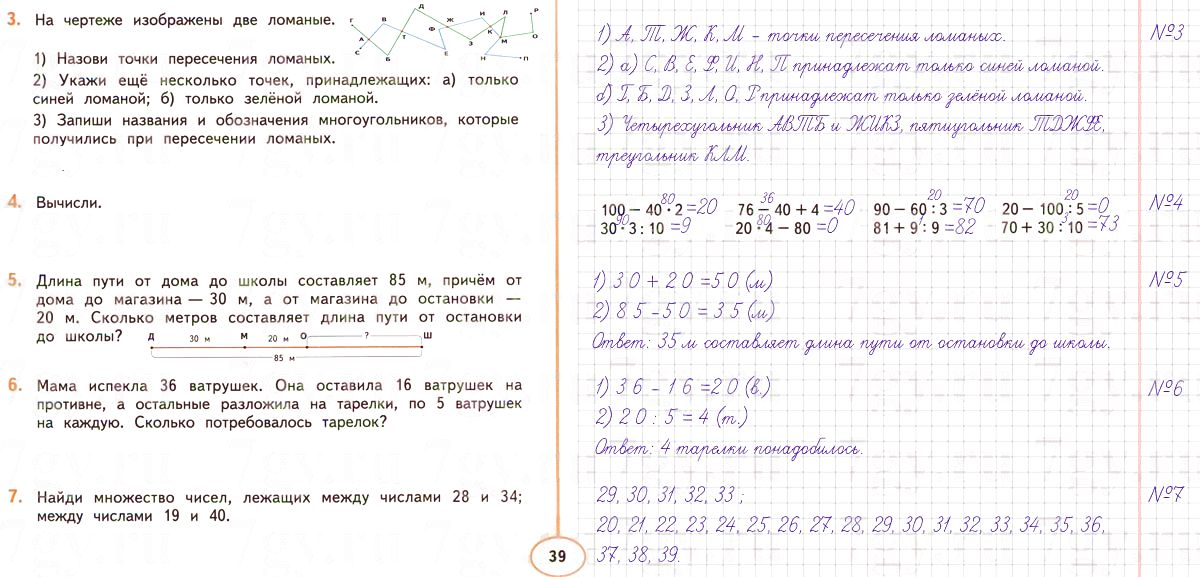 3. На чертеже изображены две ломаные.
Г В Д Ж И Л Р
А Т Ф К О
С Б Е З М Н П
1) Назови точки пересечения ломаных.
2) Укажи ещё несколько точек, принадлежащих: а) только
синей ломаной; б) только зелёной ломаной.
3) Запиши названия и обозначения многоугольников, которые
получились при пересечении ломаных.
4. Вычисли.
5. Длина пути от дома до школы составляет 85 м, причём от
дома до магазина — 30 м, а от магазина до остановки —
20 м. Сколько метров составляет длина пути от остановки
до школы?
Д 30 м М 20 м О ? Ш
85 м
6. Мама испекла 36 ватрушек. Она оставила 16 ватрушек на
противне, а остальные разложила на тарелки, по 5 ватрушек
на каждую. Сколько потребовалось тарелок?
7. Найди множество чисел, лежащих между числами 28 и 34;
между числами 19 и 40.
39
1) А, Т, Ж, К, М - точки пересечения ломаных. №3
2) а) С, В, Е, Ф, И, Н, П принадлежат только синей ломаной.
б) Г, Б, Д, З, Л, О, Р принадлежат только зелёной ломаной.
3) Четырехугольник АВТБ и ЖИКЗ, пятиугольник ТДЖФЕ,
треугольник КЛМ.
80 36 20 20
100 − 40 · 2 =20 76 − 40 + 4 =40 90 − 60 : 3 =70 20 − 100 : 5 =0 №4
90 80 1 3
30 · 3 : 10 =9 20 · 4 − 80 =0 81 + 9 : 9 =82 70 + 30 : 10 =73
1) 30 + 20 =50 (м) №5
2) 85 -50 = 35 (м)
Ответ: 35 м составляет длина пути от остановки до школы.
1) 36 - 16 =20 (в.) №6
2) 20 : 5 = 4 (т.)
Ответ: 4 тарелки понадобилось.
29, 30, 31, 32, 33 ; №7
20, 21, 22, 23, 24, 25, 26, 27, 28, 29, 30, 31, 32, 33, 34, 35, 36,
37, 38, 39.